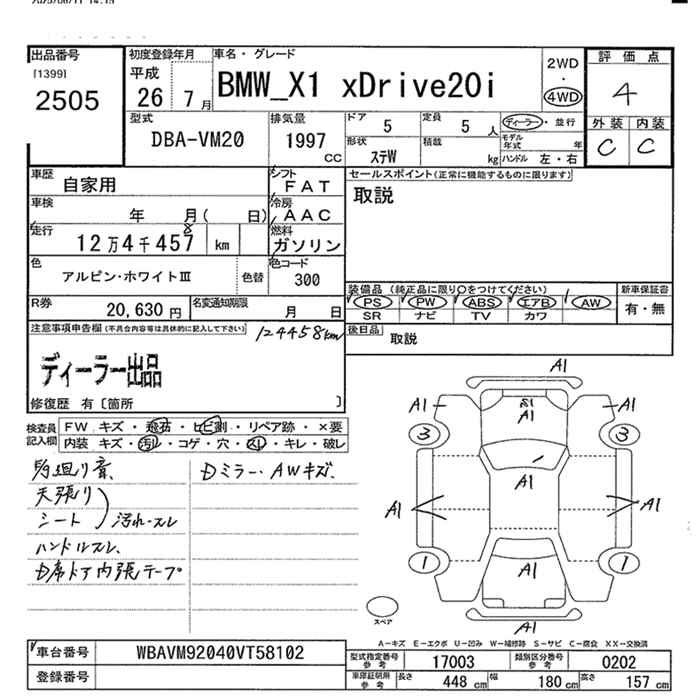 出品番号
[1399]
2505
初度登録年月
平成
26 7 月
車名・グレード
BMW_X1 xDrive20i
2WD
・
4WD
評価点
4
外装 内装
C C
型式
DBA-VM20
排気量
1997
CC
ドア
5
定員
5 人
ディーラー・並行
モデル年式 年
形状
ステW
積載
kg
ハンドル 左・右
車歴
自家用
シフト
FAT
車検
年 月( 日)
冷房
AAC
走行
12万4千457 km
8
燃料
ガソリン
色
アルピン・ホワイトⅢ
色替
色コード
300
R券
20,630 円
名変通知期限
月 日
セールスポイント(正常に機能するものに限ります)
取説
装備品(純正品に限り○をつけてください)
新車保証書
PS PW ABS エアB AW
有・無
SR ナビ TV カワ
後日品
取説
注意事項申告欄(不具合内容等は具体的に記入して下さい)
124458km
ディーラー出品
修復歴 有〔箇所 〕
検査員記入欄
FW キズ・飛石・ヒビ割・リペア跡・×要
内装 キズ・汚レ・コゲ・穴・スレ・キレ・破レ
天張り
シート
汚れ・スレ
ハンドルスレ、
D席ドア内張テープ
Dミラー・AWキズ.
A1
A1 A1 A1
3 3
A1
A1 A1
1 1
A1
A1
スペア
A-キズ E-エクボ U-凹み W-補修跡 S-サビ C-腐食 XX-交換済
車台番号
WBAVM92040VT58102
登録番号
型式指定番号
参考
17003
類別区分番号
参考
0202
車庫証明用
参考
長さ
448 cm
幅
180 cm
高さ
157 cm